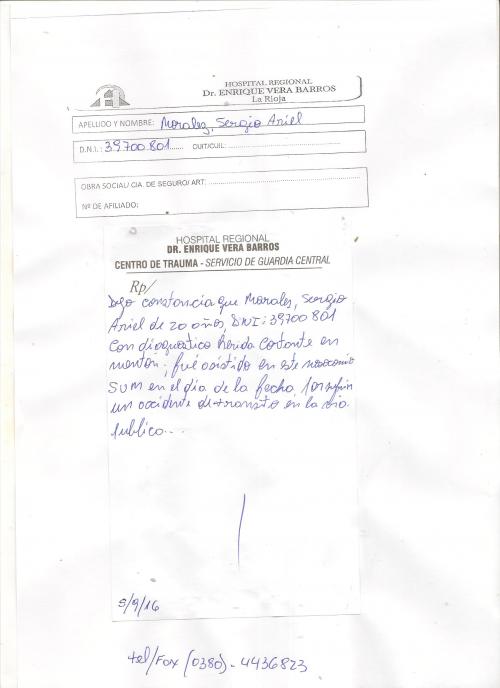 HOSPITAL REGIONAL
Dr. ENRIQUE VERA BARROS
La Rioja
APELLIDO Y NOMBRE: Morales, Sergio Ariel
D.N.I.: 39700801 CUIT/CUIL:
OBRA SOCIAL/ CIA. DE SEGURO/ ART:
Nº DE AFILIADO:
HOSPITAL REGIONAL
DR. ENRIQUE VERA BARROS
CENTRO DE TRAUMA - SERVICIO DE GUARDIA CENTRAL
Rp/
Dejo constancia que Morales, Sergio
Ariel de 20 años, DNI: 39700801
Con diagnostico herida cortante en
menton; fué asistido en este nosocomio
SUM en el día de la fecha, por sufrir
un accidente de transito en la via
publica...
5/9/16
tel/Fax (0380)-4436823